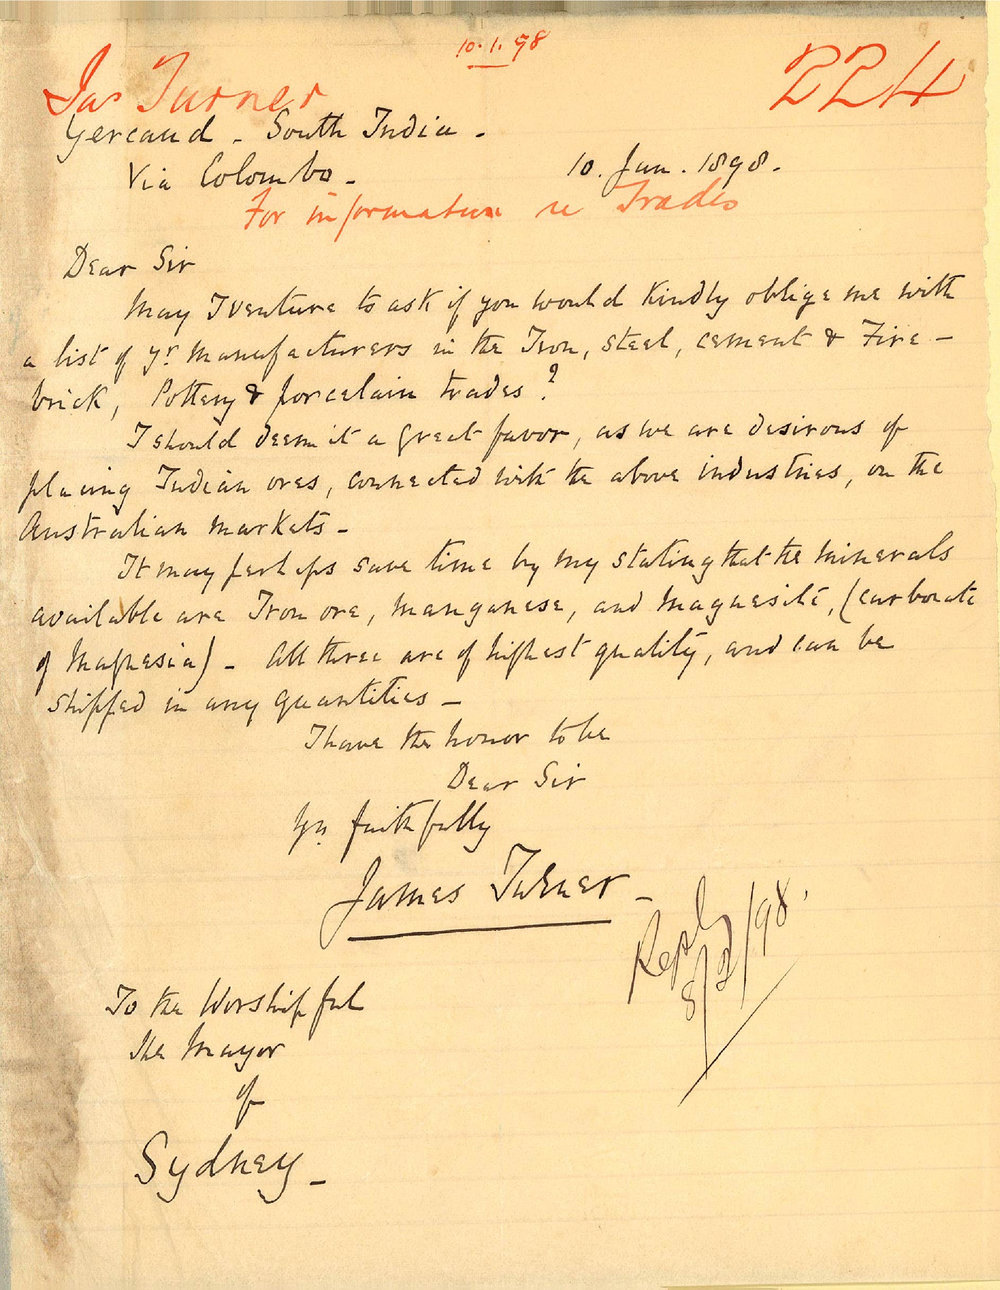 10.1.98
Jas Turner
224
Yercaud - South India -
Via Colombo -
10. Jan. 1898.
For information re Trades
Dear Sir
May I venture to ask if you would kindly oblige me with
a list of yr manufacturers in the Iron, steel, cement & Fire-
brick, Pottery & porcelain trades?
I should deem it a great favor, as we are desirous of
placing Indian ores, connected with the above industries, on the
Australian markets -
It may perhaps save time by my stating that the minerals
available are Iron ore, manganese, and magnesite, (carbonate
of Magnesia) - All three are of highest quality, and can be
shipped in any quantities -
I have the honor to be
Dear Sir
Yrs faithfully
James Turner -
Reply
8/2/98.
To the Worshipful
the Mayor
of
Sydney -